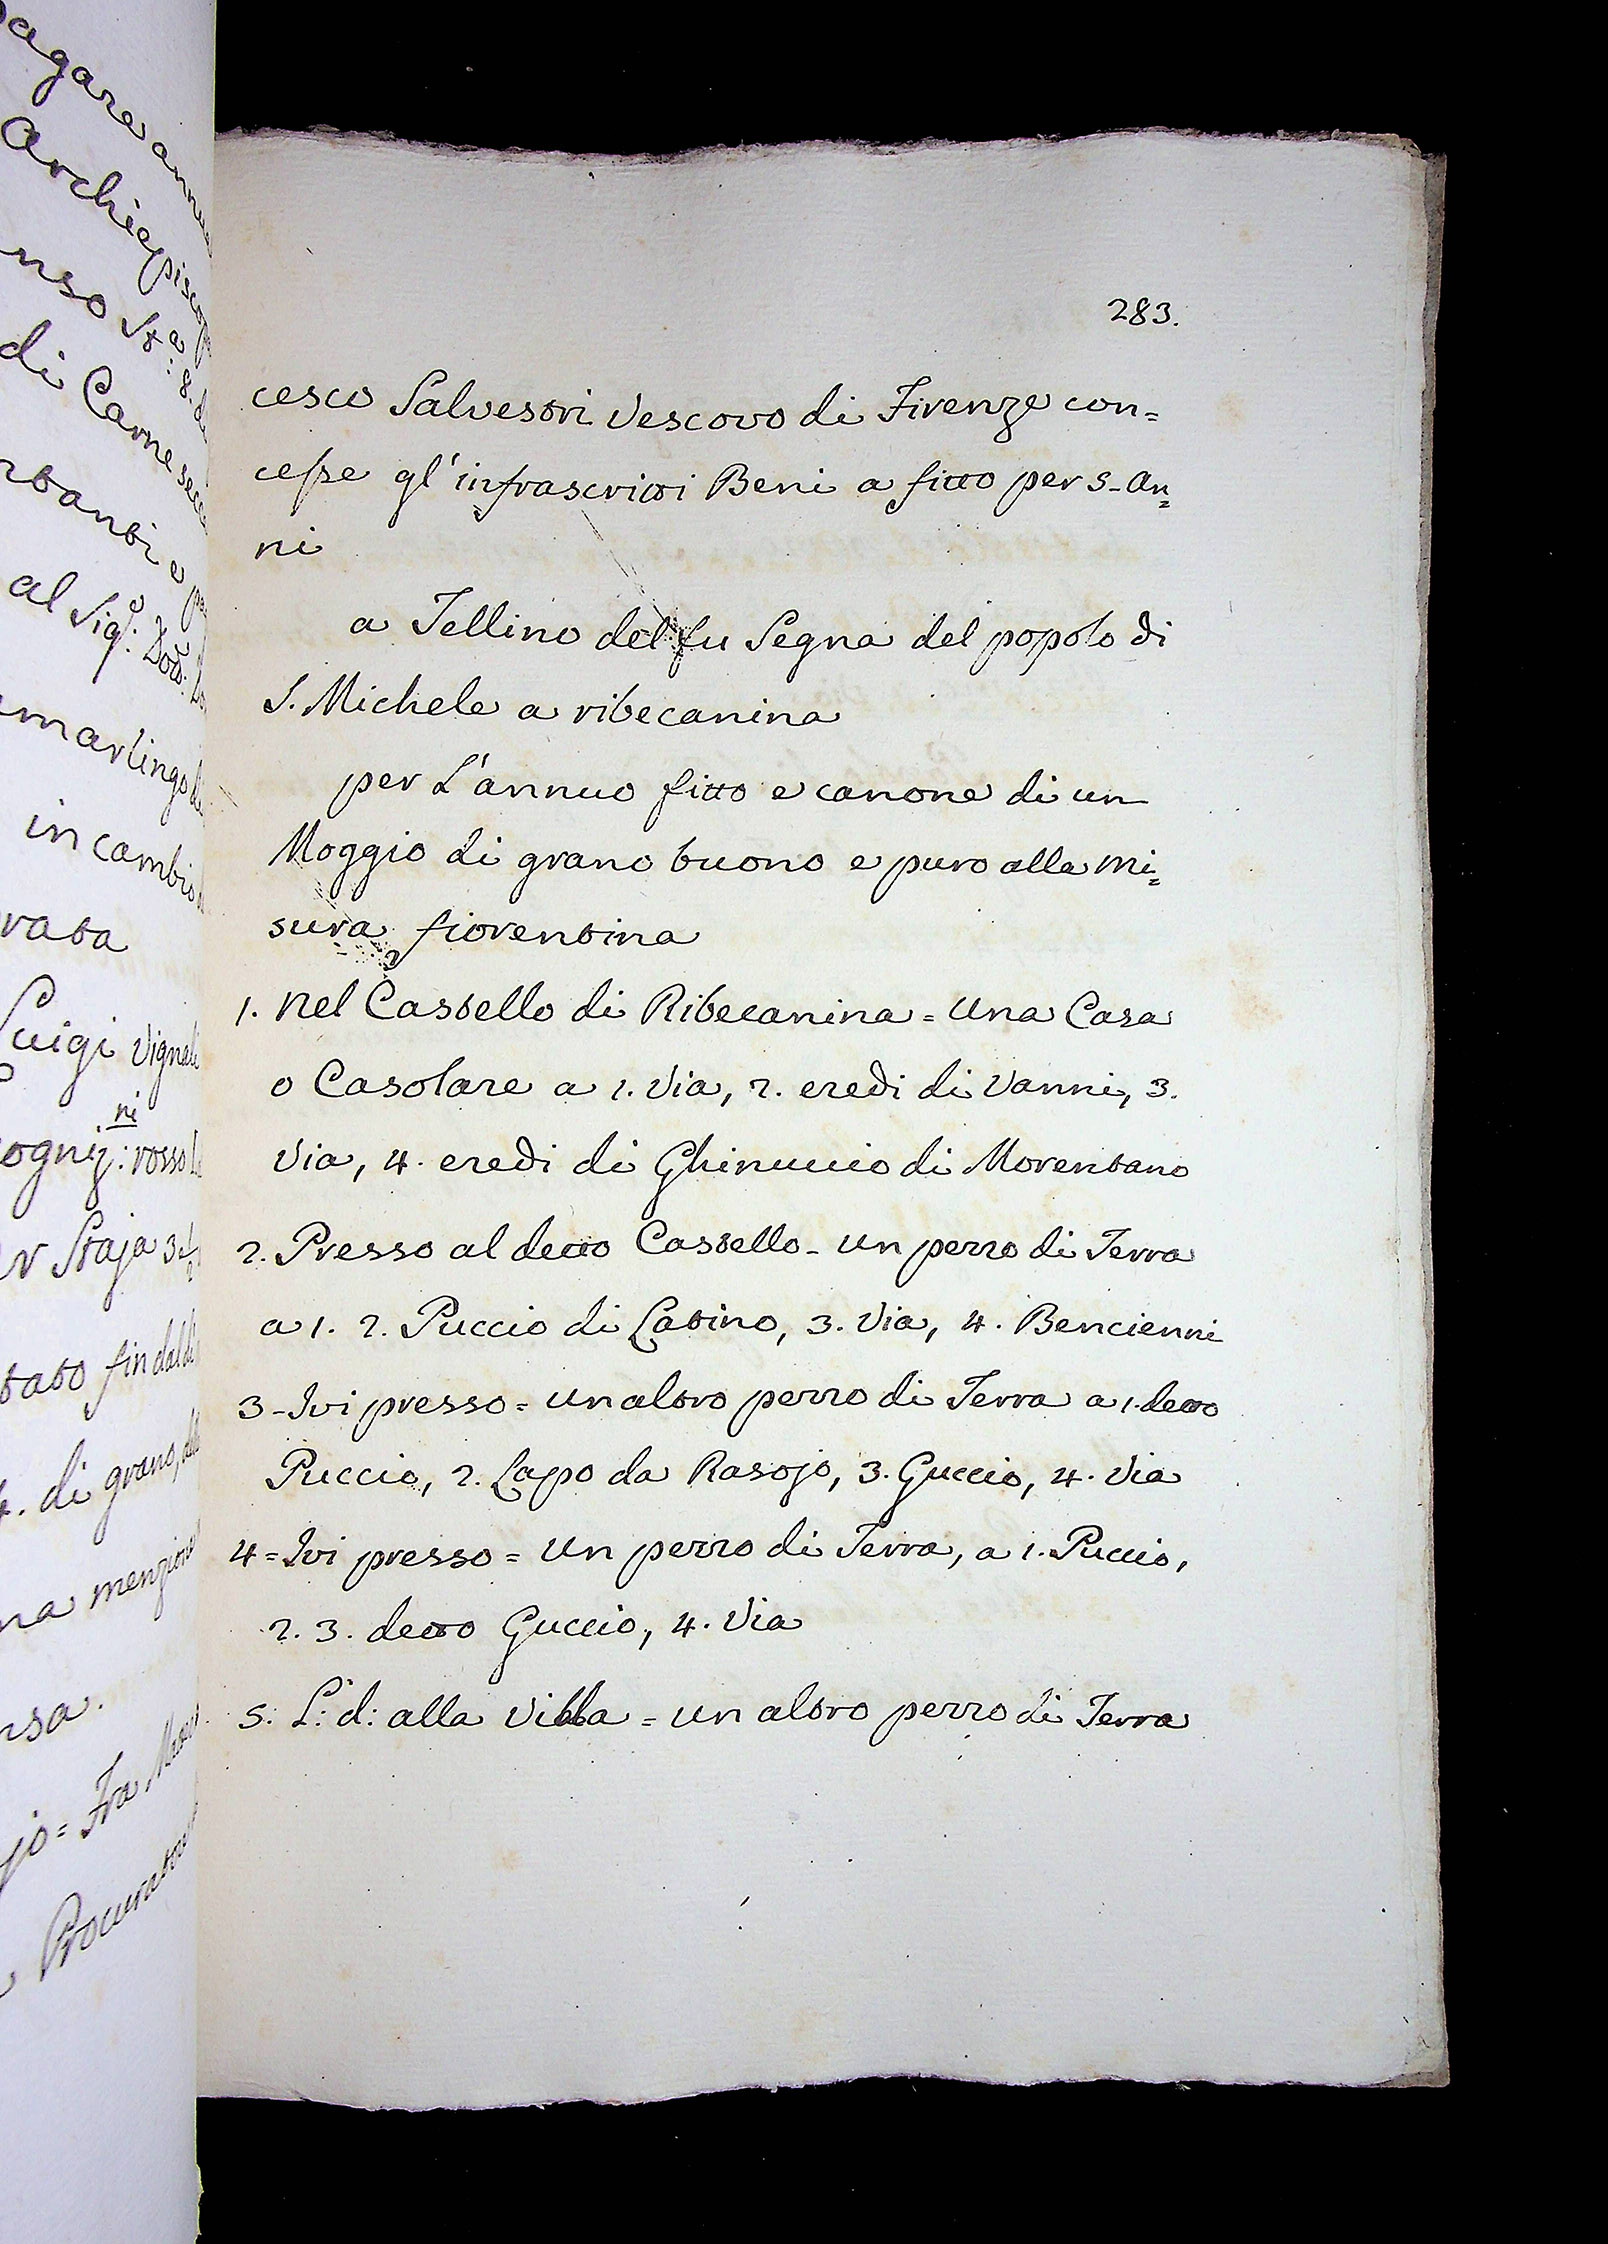 pagare annu
Archiepiscop
nso St.ª: 8. d
di Carnesecc
al Sig.e: Dott:
marlingo
in cambio
rata
Luigi Vignali
rosso
Staja 3 1/2
tato fin dal di
4. di grano,
na menzione
nsa.
jo = Fra
Procurato
283.
cesco Salvestri Vescovo di Firenze con=
cesse gl'infrascritti Beni a fitto per 5- an=
ni
a Tellino del fu Segna del popolo di
S. Michele a ribecanina
per L'annuo fitto e canone di un
Moggio di grano buono e puro alla mi=
sura fiorentina
1. nel Castello di Ribecanina = una Casa
o Casolare a 1. Via, 2. eredi di Vanni, 3.
Via, 4. eredi di Ghinuccio di Morentano
2. Presso al detto Castello - un pezzo di Terra
a 1. 2. Puccio di Latino, 3. Via, 4. Bencienni
3 - Ivi presso = un altro pezzo di Terra a 1. detto
Puccio, 2. Lapo da Rasojo, 3. Guccio, 4. Via
4 = Ivi presso = un pezzo di Terra, a 1. Puccio,
2. 3. detto Guccio, 4. Via
5. L: d: alla Villa = un altro pezzo di Terra